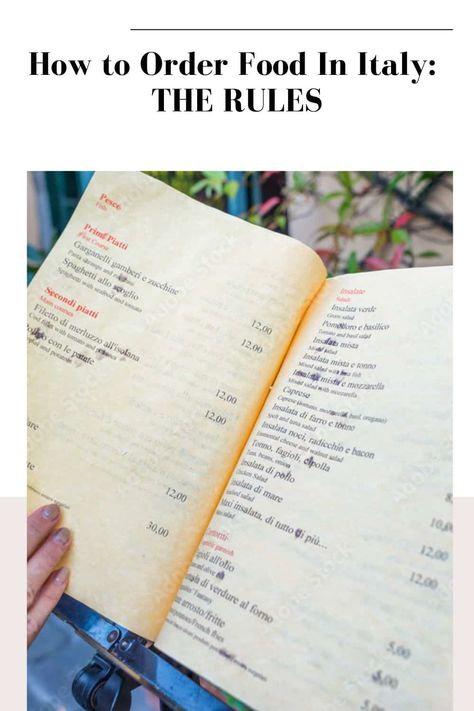 How to Order Food In Italy:
THE RULES
Pesce
Fish
Primi Piatti
First Course
Garganelli gamberi e zucchine
Pasta shrimps and
Spaghetti allo scoglio
Spaghetti with seafood and tomato
12,00
12,00
Secondi piatti
Main courses
Filetto di merluzzo all'isolana
Cod fillet with tomato and potatoes
con le patate
and potatoes
12,00
12,00
12,00
30,00
Insalate
Salads
Insalata verde
Green salad
Pomodoro e basilico
Tomato and basil salad
Insalata mista
Mixed salad
Insalata mista e tonno
Mixed salad with tuna fish
Insalata mista e mozzarella
Mixed salad with mozzarella
Caprese
Caprese (tomato, mozzarella, basil, oregano)
Insalata di farro e tonno
Spelt and tuna salad
Insalata noci, radicchio e bacon
Emmental cheese and walnut salad
Tonno, fagioli, cipolla
Tuna, beans, onion
Insalata di pollo
Chicken Salad
Insalata di mare
salad
Maxi insalata, di tutto di più...
salad
garnish
all'olio
di verdure al forno
arrosto/fritte
potatoes/French fries
10,00
12,00
12,00
5,00
5,00